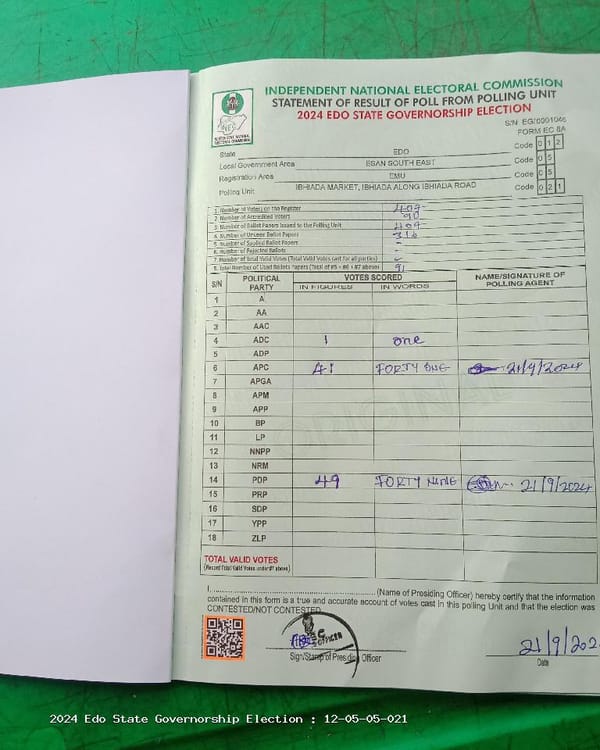 INDEPENDENT NATIONAL ELECTORAL COMMISSION
STATEMENT OF RESULT OF POLL FROM POLLING UNIT
2024 EDO STATE GOVERNORSHIP ELECTION
FORM EC 8A
State EDO Code 012
Local Government Area ESAN SOUTH EAST Code 05
Registration Area EMU Code 05
Polling Unit IBHIADA MARKET, IBHIADA ALONG IBHIADA ROAD Code 021
1. Number of Voters on the Register 409
2. Number of Accredited Voters
3. Number of Ballot Papers Issued to the Polling Unit 409
4. Number of Unused Ballot Papers
5. Number of Spoiled Ballot Papers -
6. Number of Rejected Ballots -
7. Number of Total Valid Votes (Total Valid Votes cast for all parties)
8. Total Number of Used Ballots Papers (Total of #5 + #6 + #7 above) 91
S/N POLITICAL PARTY VOTES SCORED NAME/SIGNATURE OF POLLING AGENT
IN FIGURES IN WORDS
1 A
2 AA
3 AAC
4 ADC 1 one
5 ADP
6 APC 41 FORTY ONE 21/9/2024
7 APGA
8 APM
9 APP
10 BP
11 LP
12 NNPP
13 NRM
14 PDP 49 FORTY NINE 21/9/2024
15 PRP
16 SDP
17 YPP
18 ZLP
TOTAL VALID VOTES
(Record Total Valid Votes under #7 above)
I, ........ (Name of Presiding Officer) hereby certify that the information
contained in this form is a true and accurate account of votes cast in this polling Unit and that the election was
CONTESTED/NOT CONTESTED
OFFICER
21/9/202
Sign/Stamp of Presiding Officer Date
2024 Edo State Governorship Election : 12-05-05-021